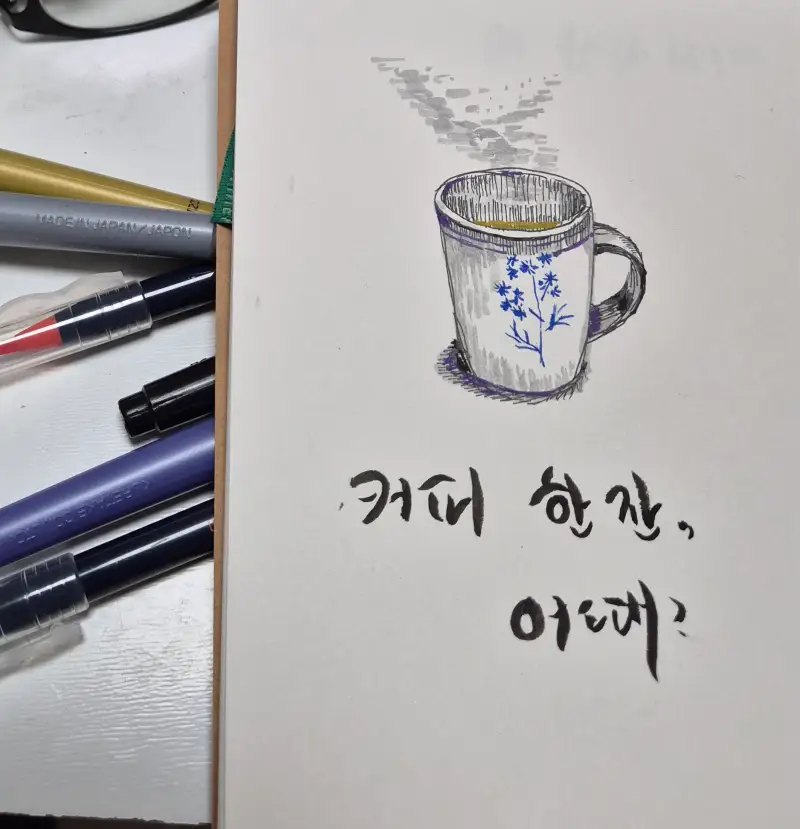 MADE IN JAPAN / JAPON
커피 한잔,
어때?